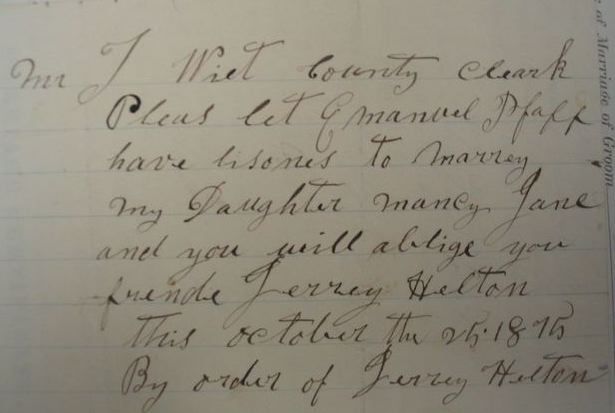 Mr J Wiet County Cleark
Pleas let Emanuel Pfaff
have lisones to Marrey
my Daughter mancy Jane
and you will ablige you
frende Jerrey Helton
this october the 25 1875
By order of Jerrey Helton
e of Marriage of Groom